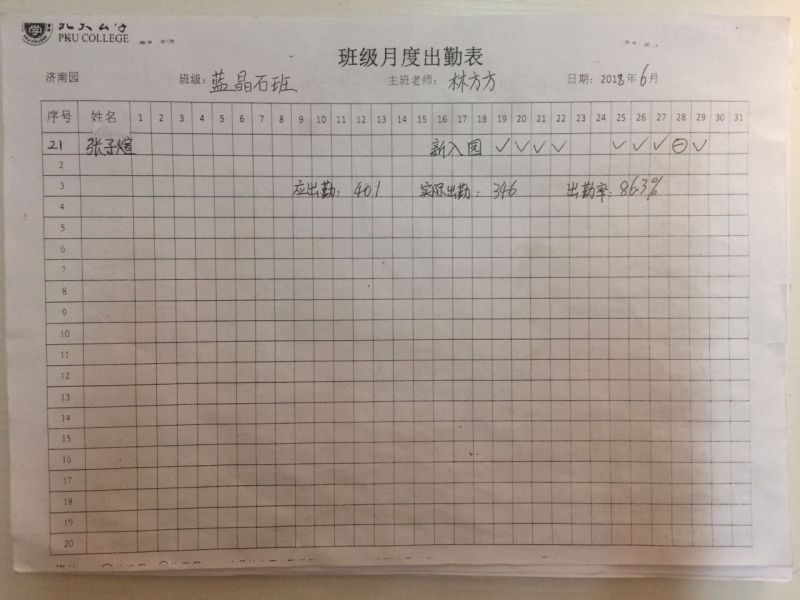 PKU COLLEGE
班级月度出勤表
济南园 班级：蓝晶石班 主班老师：林方方 日期：2018年6月
序号 姓名 1 2 3 4 5 6 7 8 9 10 11 12 13 14 15 16 17 18 19 20 21 22 23 24 25 26 27 28 29 30 31
21 张子煊 新入园 ✓ ✓ ✓ ✓ ✓ ✓ ✓ ⊖ ✓
2
3 应出勤：401 实际出勤：346 出勤率：86.3%
4
5
6
7
8
9
10
11
12
13
14
15
16
17
18
19
20